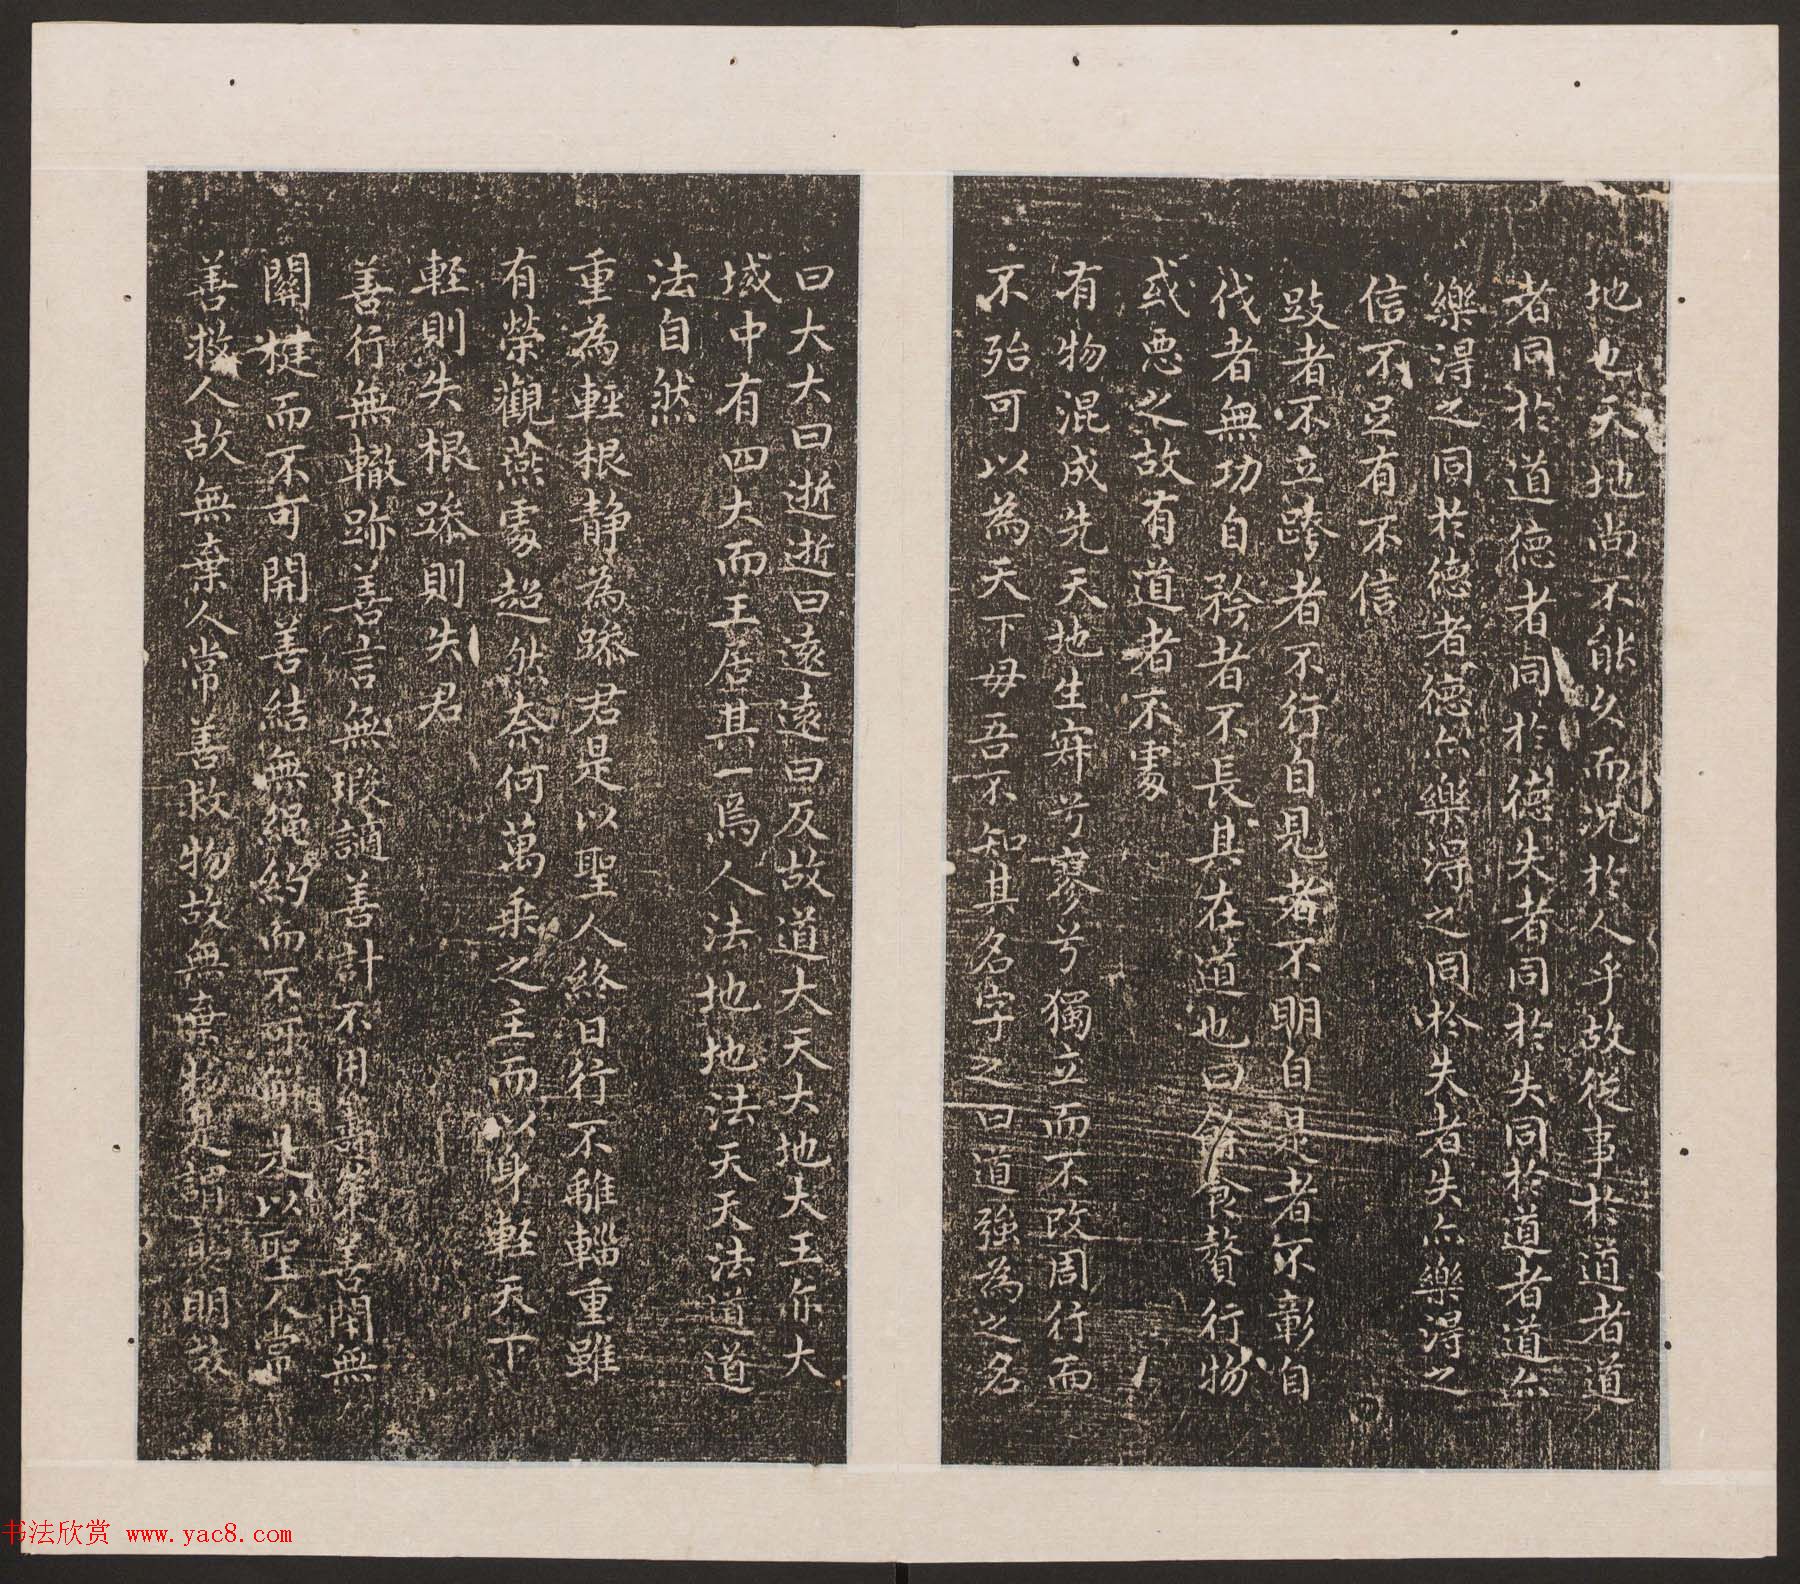 地也天地尚不能久而況於人乎故從事於道者道
者同於道德者同於德失者同於失同於道者道亦
樂得之同於德者德亦樂得之同於失者失亦樂得之
信不足有不信
跂者不立跨者不行自見者不明自是者不彰自
伐者無功自矜者不長其在道也曰餘食贅行物
或惡之故有道者不處
有物混成先天地生寂兮寥兮獨立而不改周行而
不殆可以為天下母吾不知其名字之曰道強為之名
曰大大曰逝逝曰遠遠曰反故道大天大地大王亦大
域中有四大而王居其一焉人法地地法天天法道道
法自然
重為輕根靜為躁君是以聖人終日行不離輜重雖
有榮觀燕處超然奈何萬乘之主而以身輕天下
輕則失根躁則失君
善行無轍跡善言無瑕謫善計不用籌策善閉無
關楗而不可開善結無繩約而不可解是以聖人常
善救人故無棄人常善救物故無棄物是謂襲明故
书法欣赏 www.yac8.com